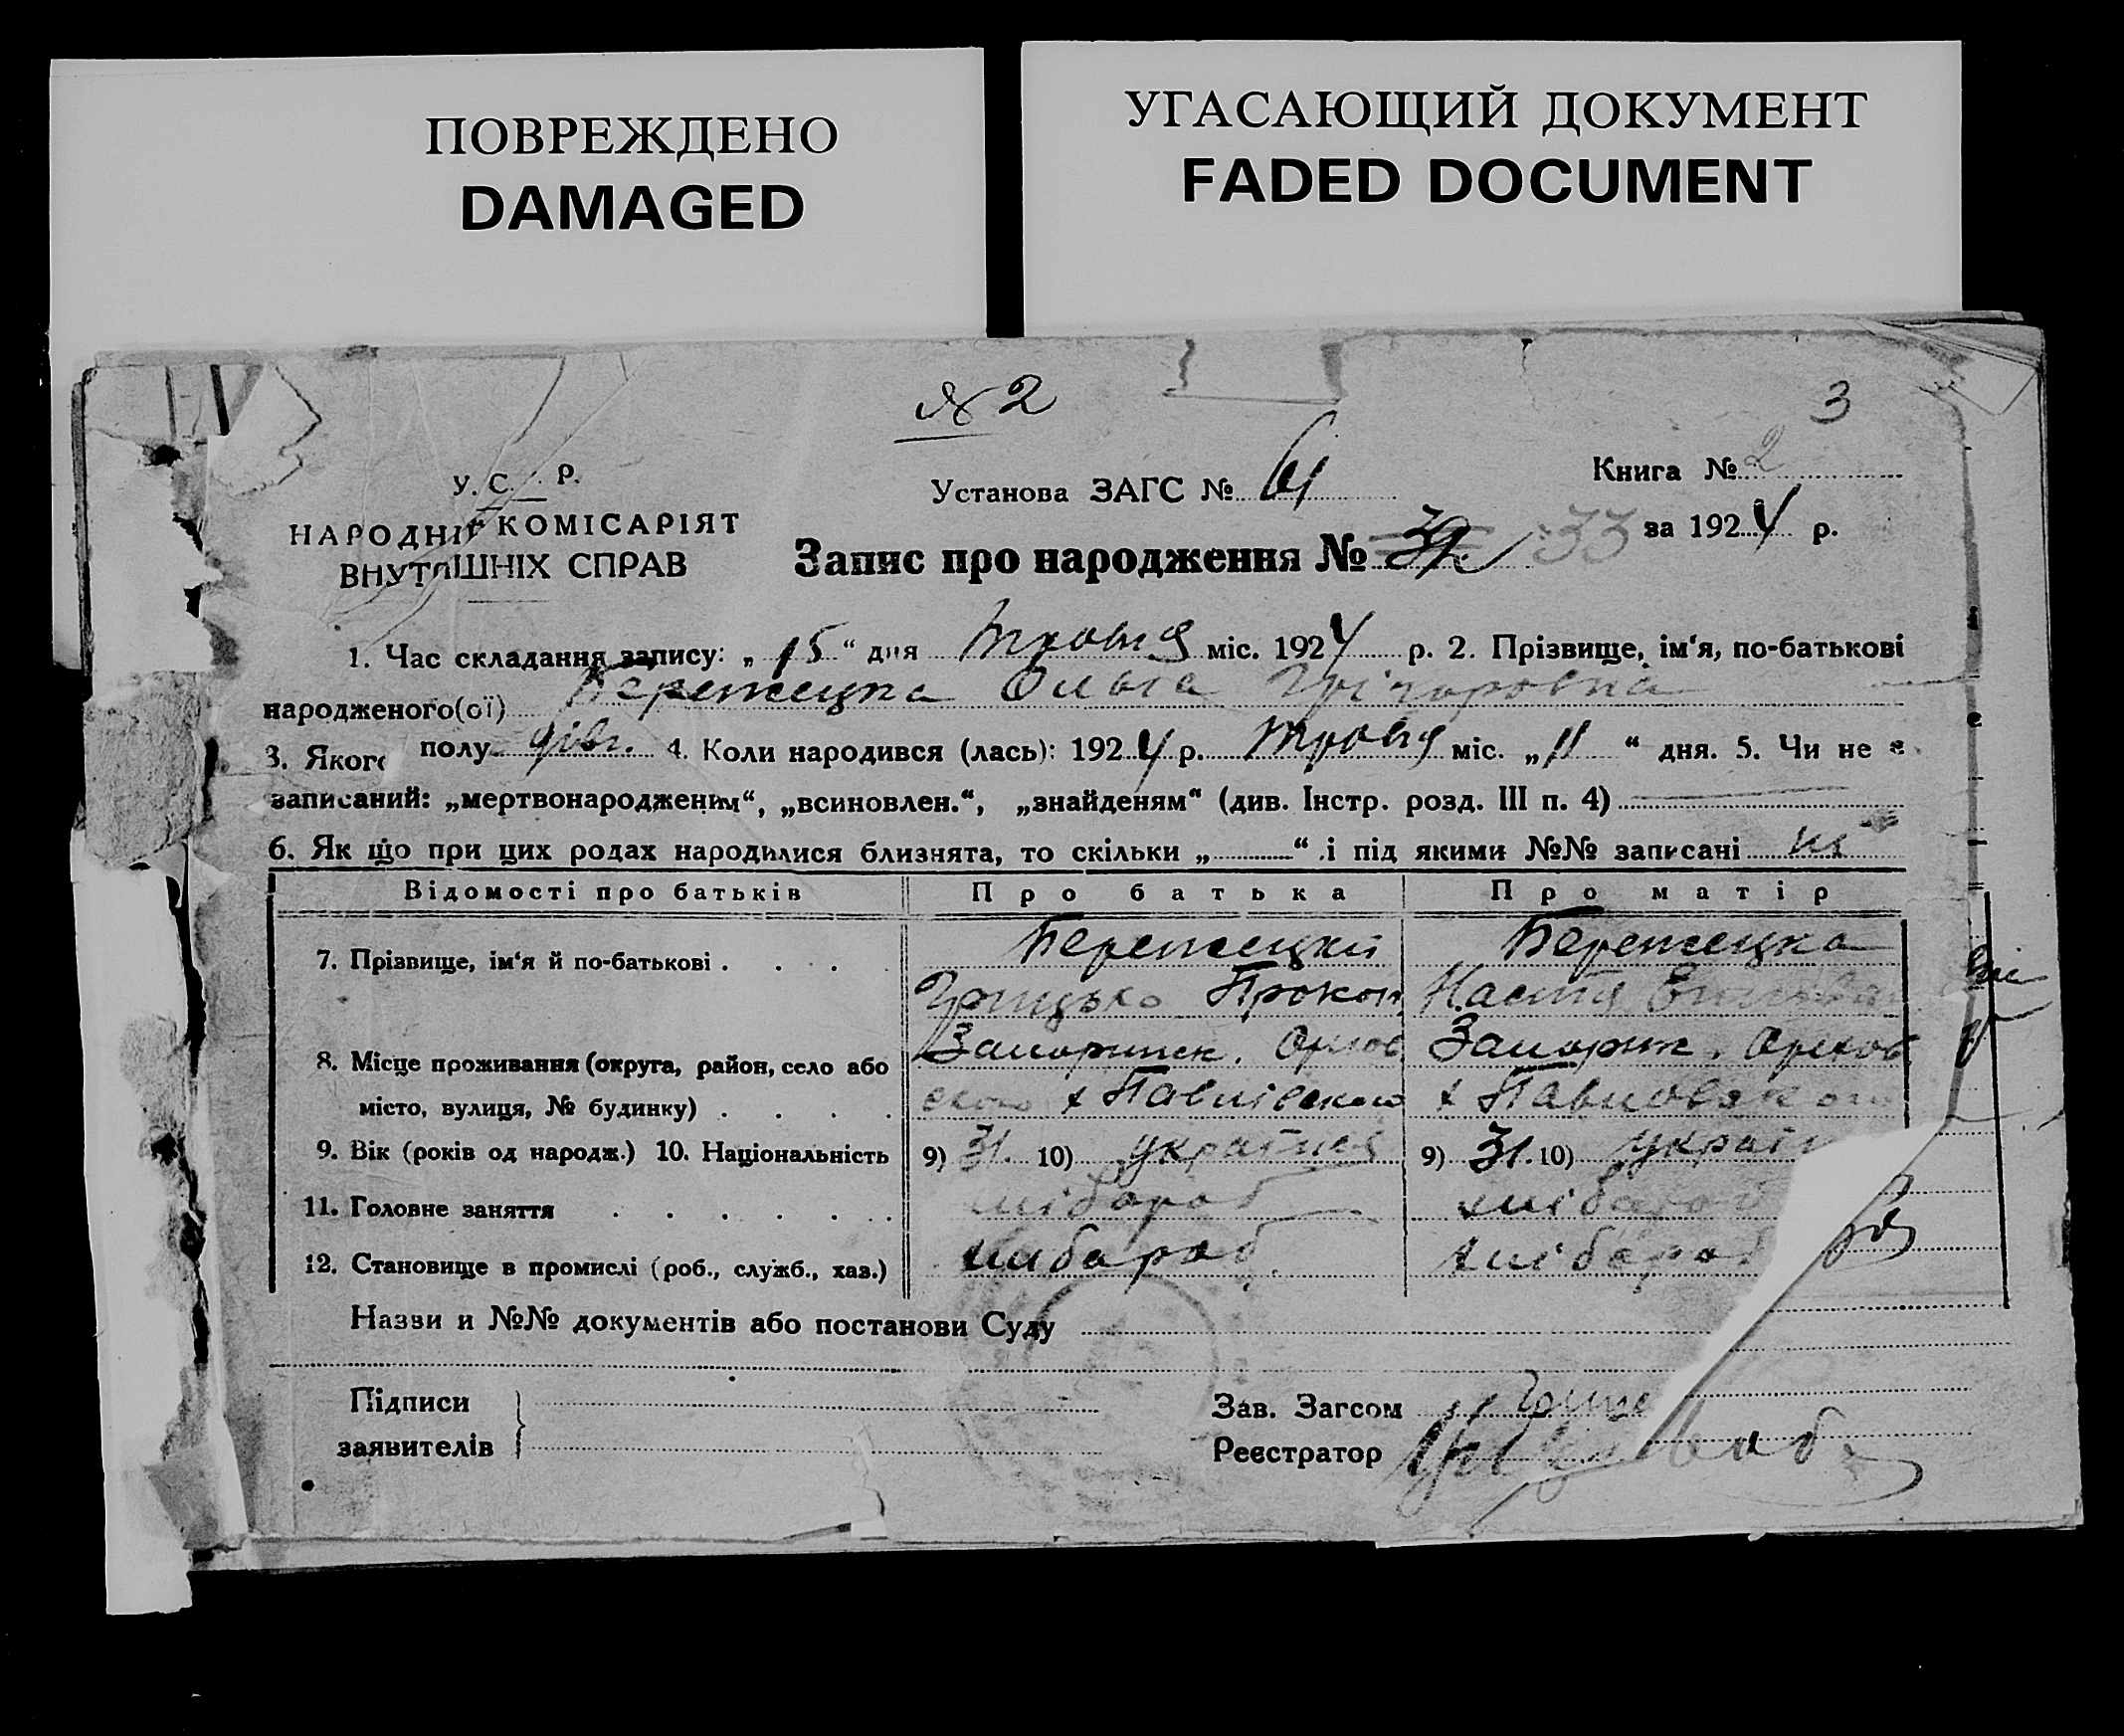 ПОВРЕЖДЕНО
DAMAGED
УГАСАЮЩИЙ ДОКУМЕНТ
FADED DOCUMENT
№ 2
3
У. С. Р.
НАРОДНІЙ КОМІСАРІЯТ
ВНУТРІШНІХ СПРАВ
Установа ЗАГС № 61
Книга № 2
Запис про народження № 33 за 1924 р.
1. Час складання запису: „15“ дня травня міс. 1924 р. 2. Прізвище, ім‘я, по-батькові
народженого(ої) Бережецка Ольга Грігоровна
3. Якого полу дівч. 4. Коли народився (лась): 1924 р. травня міс. „11“ дня. 5. Чи не є
записаний: „мертвонародженим“, „всиновлен.“, „знайденям“ (див. Інстр. розд. III п. 4)
6. Як що при цих родах народилися близнята, то скільки „ “ і під якими №№ записані ні
Відомості про батьків Про батька Про матір
7. Прізвище, ім‘я й по-батькові Бережецкий Бережецка
Грицько Прокоп Настя
8. Місце проживання (округа, район, село або Запоріжск. Оріхов Запоріж. Орехов
місто, вулиця, № будинку) ского х Павлівского х Павловского
9. Вік (років од народж.) 10. Національність 9) 31. 10) українец 9) 31. 10) україн
11. Головне заняття хлібороб хлібороб
12. Становище в промислі (роб., служб., хаз.) хлібороб. хлібороб
Назви и №№ документів або постанови Суду
Підписи
заявителів
Зав. Загсом
Реєстратор